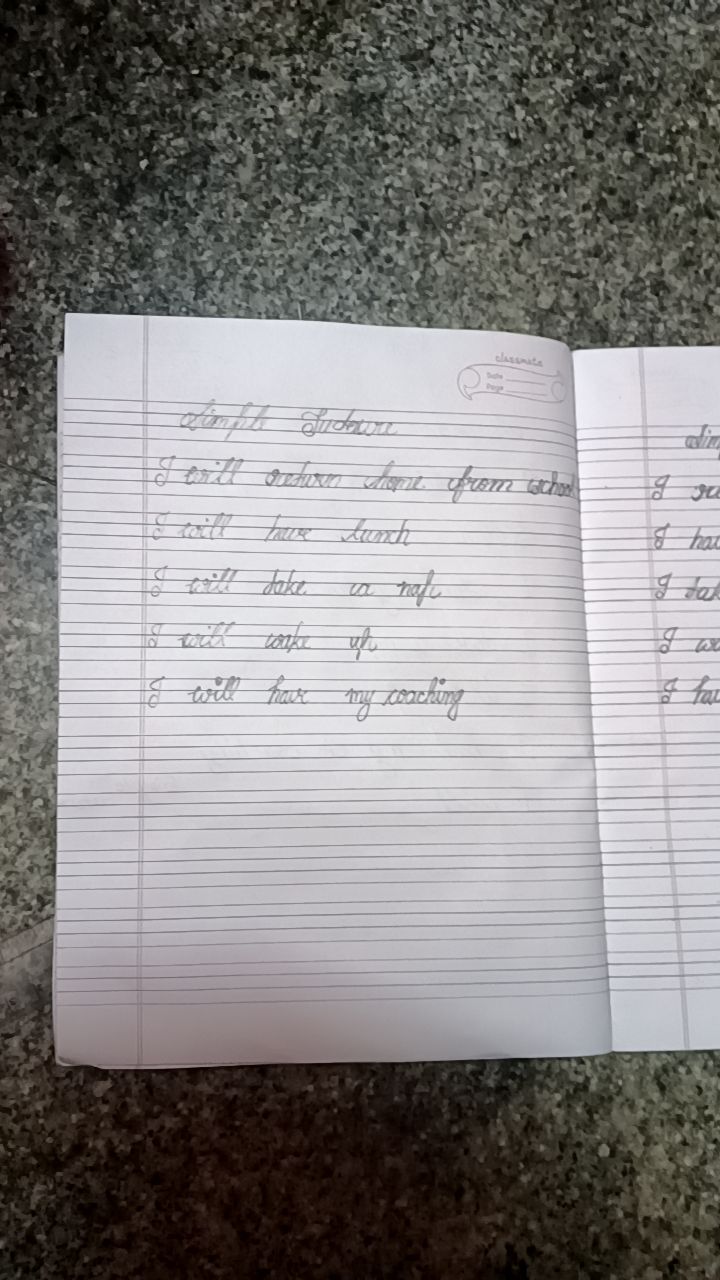 classmate
Date
Page
Simple Future
I will return home from school
I will have lunch
I will take a nap
I will wake up
I will have my coaching
I
I
I
I
I